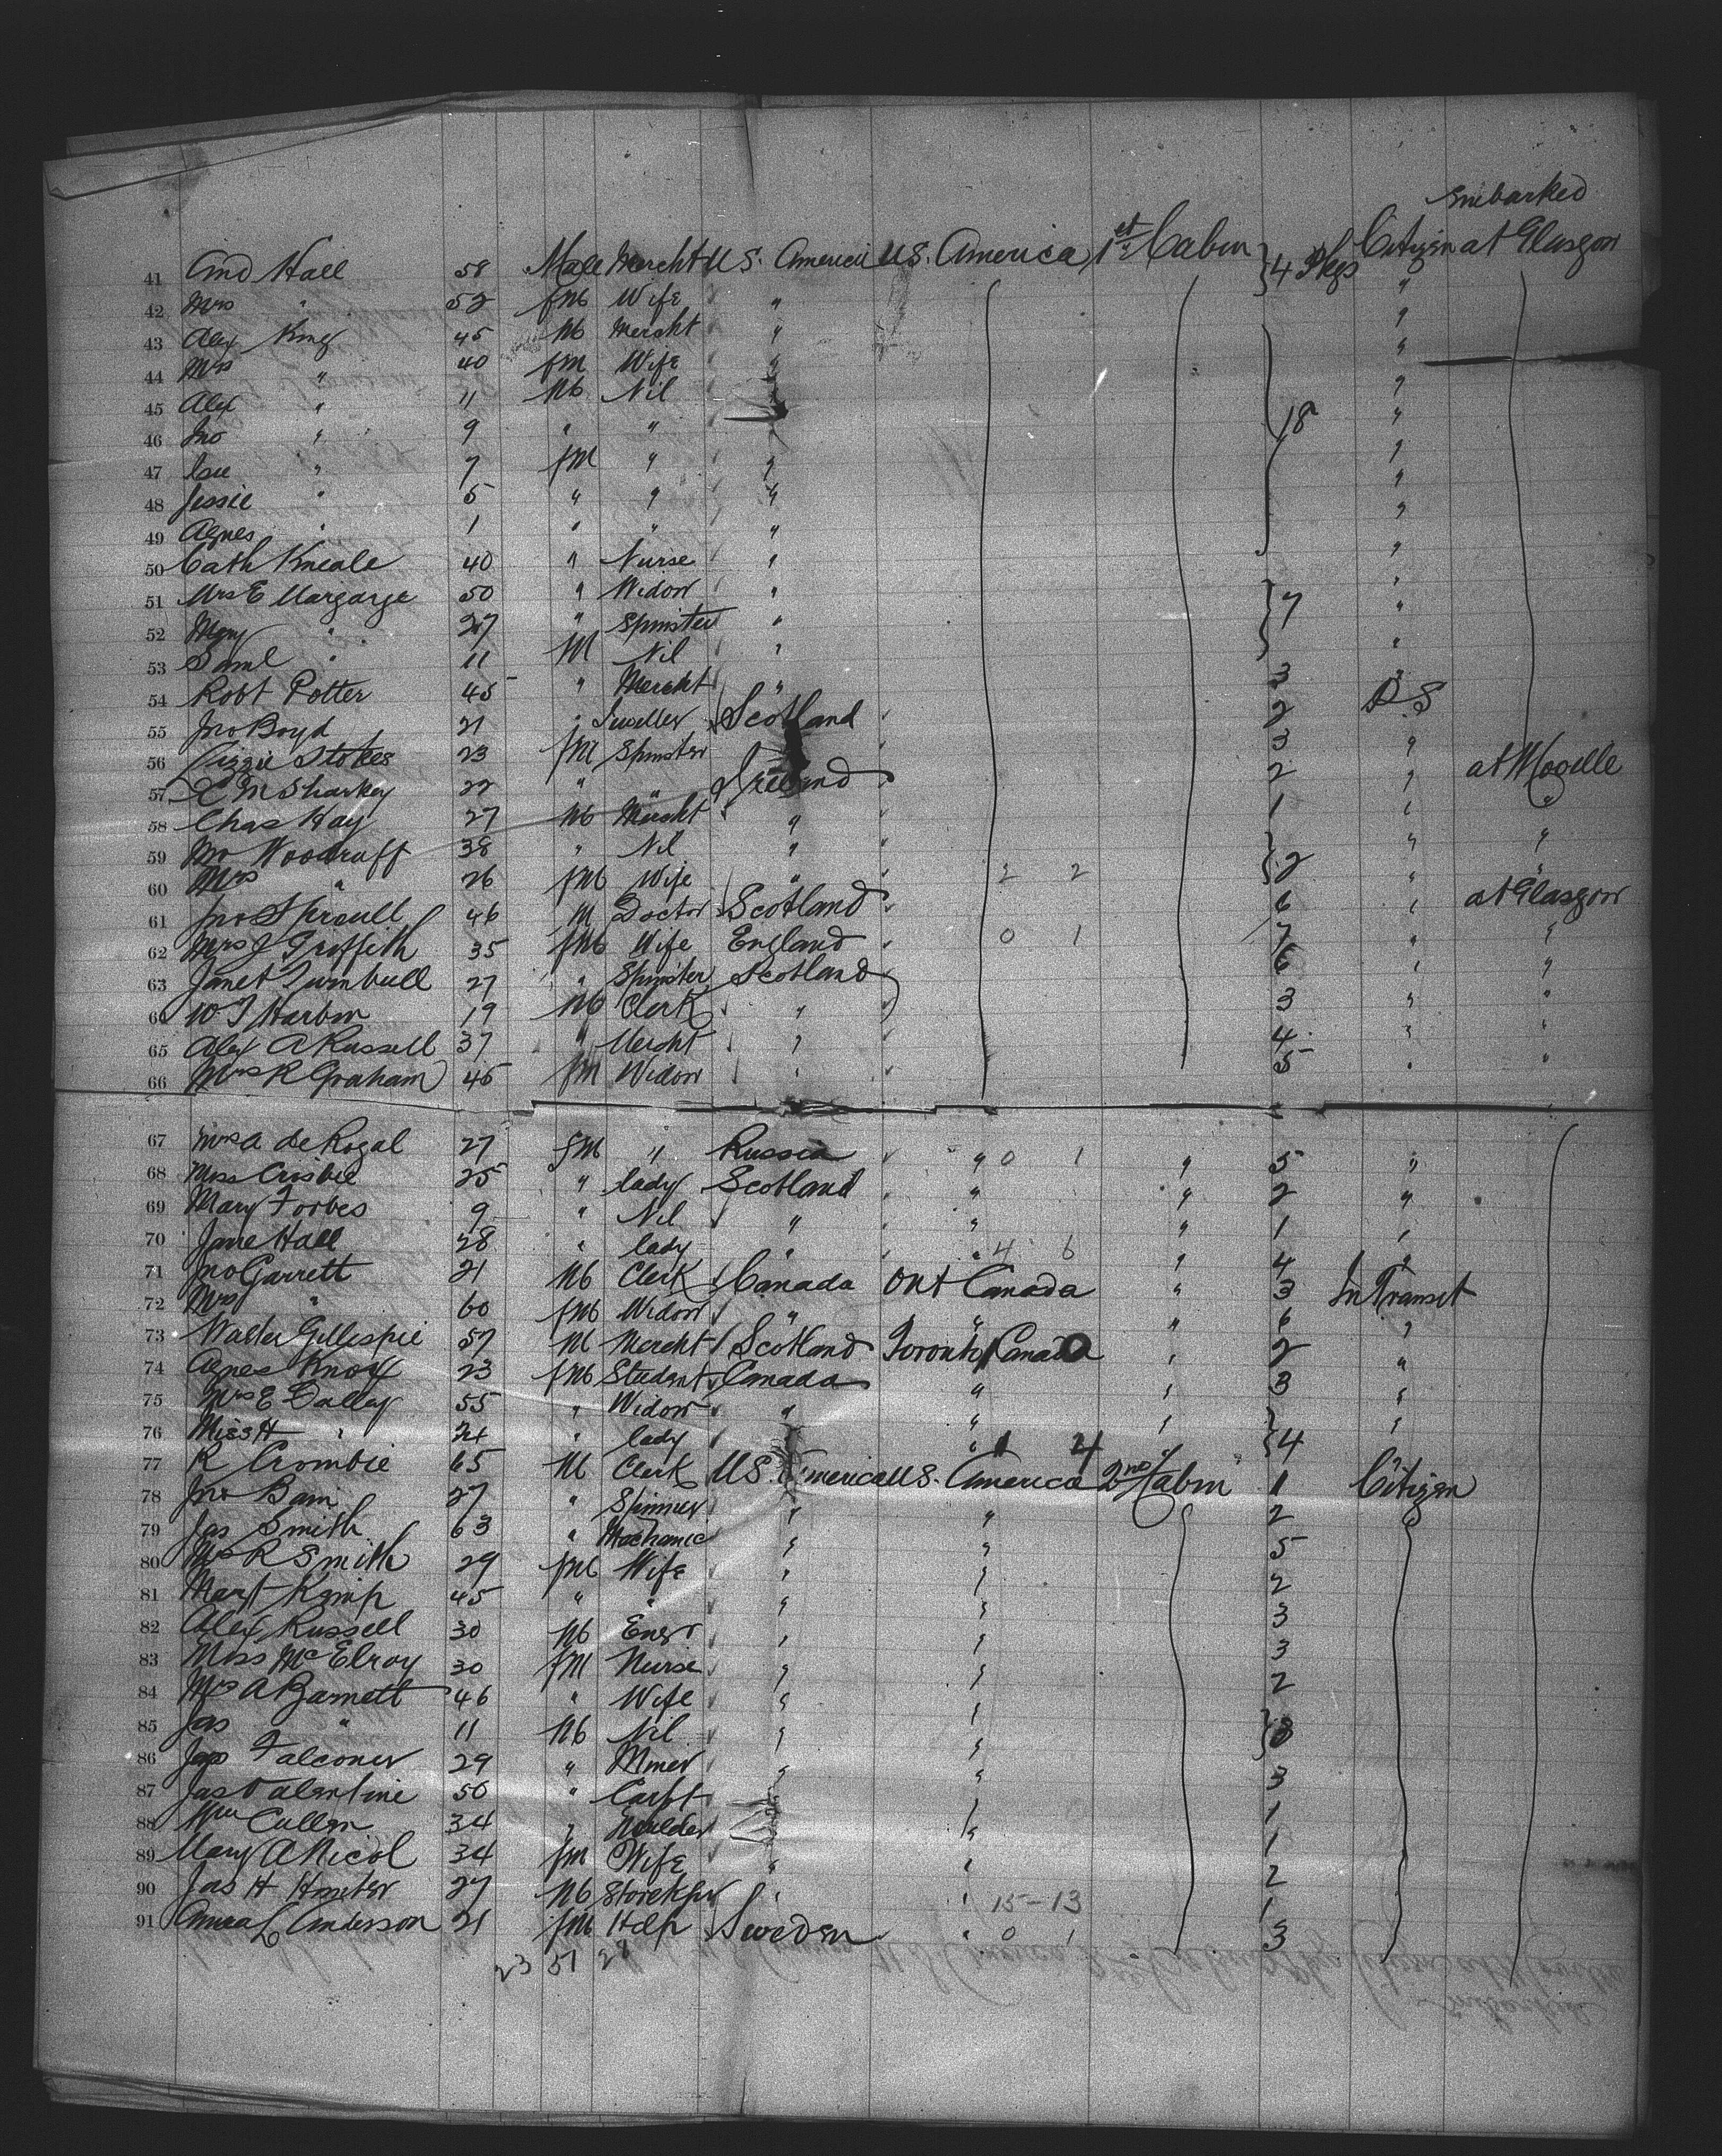 Embarked
41 And Hall 58 Male Mercht U.S. America U.S. America 1st Cabin 4 Pkgs Citizen at Glasgow
42 Mrs " 52 fM Wife " "
43 Alex King 45 M Mercht " "
44 Mrs " 40 fM Wife " "
45 Alex " 11 M Nil "
46 Jno " 9 " " 18 "
47 " 7 fM " " "
48 Jessie " 5 " " " "
49 Agnes " 1 " " " "
50 Cath Kneale 40 " Nurse " "
51 Mrs E Margarge 50 " Widow " 7 "
52 Mary " 27 " Spinster " "
53 Saml " 11 M Nil " "
54 Robt Potter 45 " Mercht " 3 "
55 Jno Boyd 21 " Jweller Scotland 2 P S
56 Lizzie Stokes 23 fM Spinster 3 "
57 E McSharkey 22 " " Ireland 2 " at Moville
58 Chas Hay 27 M Mercht " 1 " "
59 Mr Woodruff 38 " Nil " 2 " "
60 Mrs " 26 fM Wife " 2 2 " "
61 Jno Sproull 46 M Doctor Scotland 6 " at Glasgow
62 Mrs J Griffith 35 fM Wife England 0 1 7 " "
63 Janet Turnbull 27 " Spinster Scotland 6 " "
64 W J Harbin 19 M Clerk " 3 " "
65 Alex A Russell 37 " Mercht " 4 " "
66 Mrs R Graham 45 fM Widow " 5 " "
67 Mrs A de Rogal 27 fM " Russia " 0 1 " 5 "
68 Miss Crisbie 25 " lady Scotland " " 2 "
69 Mary Forbes 9 " Nil " " " 1 "
70 Jane Hall 28 " lady " " 4 6 " 4 "
71 Jno Garrett 21 M Clerk Canada Ont Canada " 3 In Transit
72 Mrs " 60 fM Widow " " " 6 "
73 Walter Gillespie 57 M Mercht Scotland Toronto Canada " 2 "
74 Agnes Knox 23 fM Student Canada " " 3 "
75 Mrs E Dalley 55 " Widow " " " 4 "
76 Miss H " 24 " lady " " 1 4
77 R Crombie 65 M Clerk U.S. America U.S. America 2nd Cabin 1 Citizen
78 Jno Bain 27 " Spinner " " 2
79 Jas Smith 63 " Mechanic " " 5
80 Mrs R Smith 29 fM Wife " " 2
81 Margt Kemp 45 " " " " 3
82 Alex Russell 30 M Engr " " 3
83 Miss McElroy 30 fM Nurse " " 2
84 Mrs A Barnett 46 " Wife " "
85 Jas " 11 M Nil " " 3
86 Jas Falconer 29 " Miner " " 3
87 Jas Valentine 50 " Carpt " 1
88 Wm Cullen 34 " Moulder " 1
89 Mary A Nicol 34 fM Wife " " 2
90 Jas H Hunter 27 M Storekpr " " 15-13 1
91 Anna L Anderson 21 fM Help Sweden " 0 1 3
23 51 28